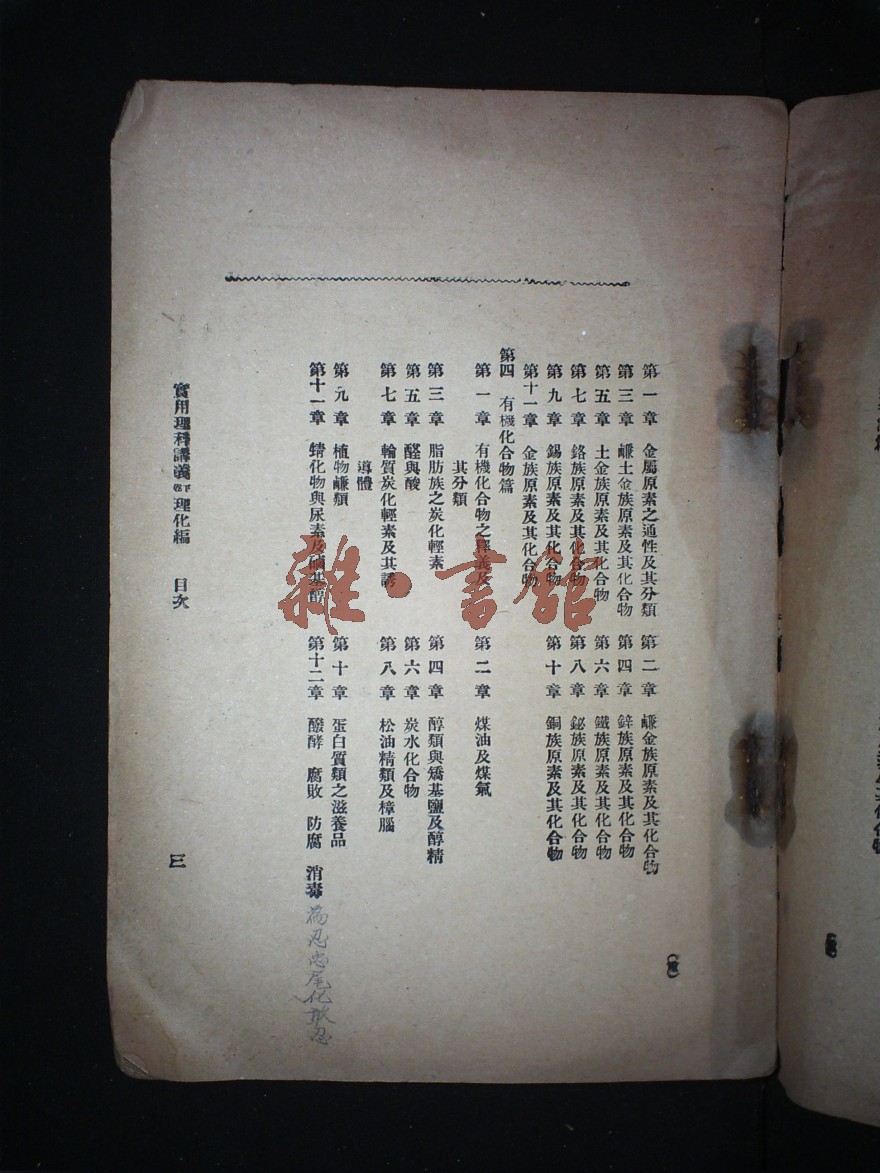 第一章 金屬原素之通性及其分類 第二章 鹻金族原素及其化合物
第三章 鹻土金族原素及其化合物 第四章 鋅族原素及其化合物
第五章 土金族原素及其化合物 第六章 鐵族原素及其化合物
第七章 鉻族原素及其化合物 第八章 鉍族原素及其化合物
第九章 錫族原素及其化合物 第十章 銅族原素及其化合物
第十一章 金族原素及其化合物
第四 有機化合物篇
第一章 有機化合物之釋義及 第二章 煤油及煤氣
其分類
第三章 脂肪族之炭化輕素 第四章 醇類與矯基鹽及醇精
第五章 醛與酸 第六章 炭水化合物
第七章 輪質炭化輕素及其誘 第八章 松油精類及樟腦
導體
第九章 植物鹻類 第十章 蛋白質類之滋養品
第十一章 錆化物與尿素及硝基醇 第十二章 醱酵 腐敗 防腐 消毒
實用理科講義卷下 理化編 目次
三
雜·書館